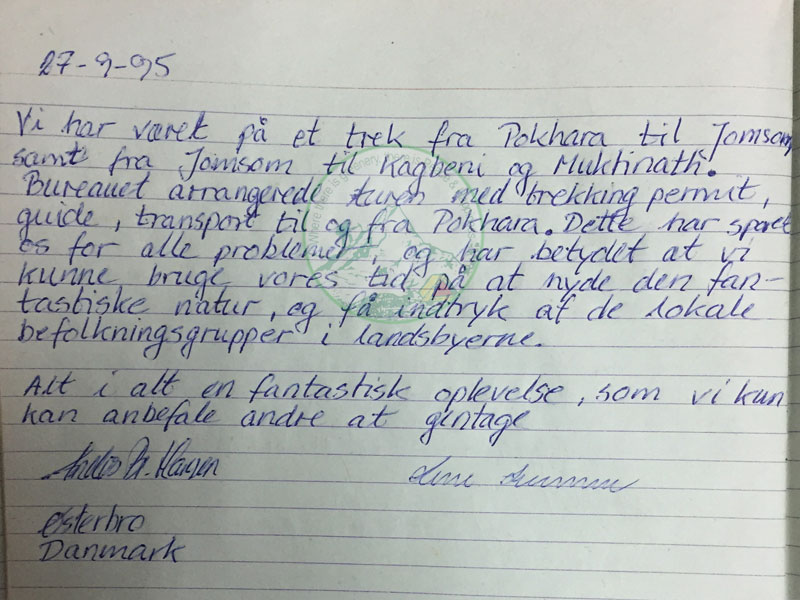 27-9-95
Vi har været på et trek fra Pokhara til Jomsom,
samt fra Jomsom til Kagbeni og Muktinath.
Bureauet arrangerede turen med trekking permit,
guide, transport til og fra Pokhara. Dette har sparet
os for alle problemer, og har betydet at vi
kunne bruge vores tid på at nyde den fan-
tastiske natur, og få indtryk af de lokale
befolkningsgrupper i landsbyerne.
Alt i alt en fantastisk oplevelse, som vi kun
kan anbefale andre at gentage
Hansen
Østerbro
Danmark